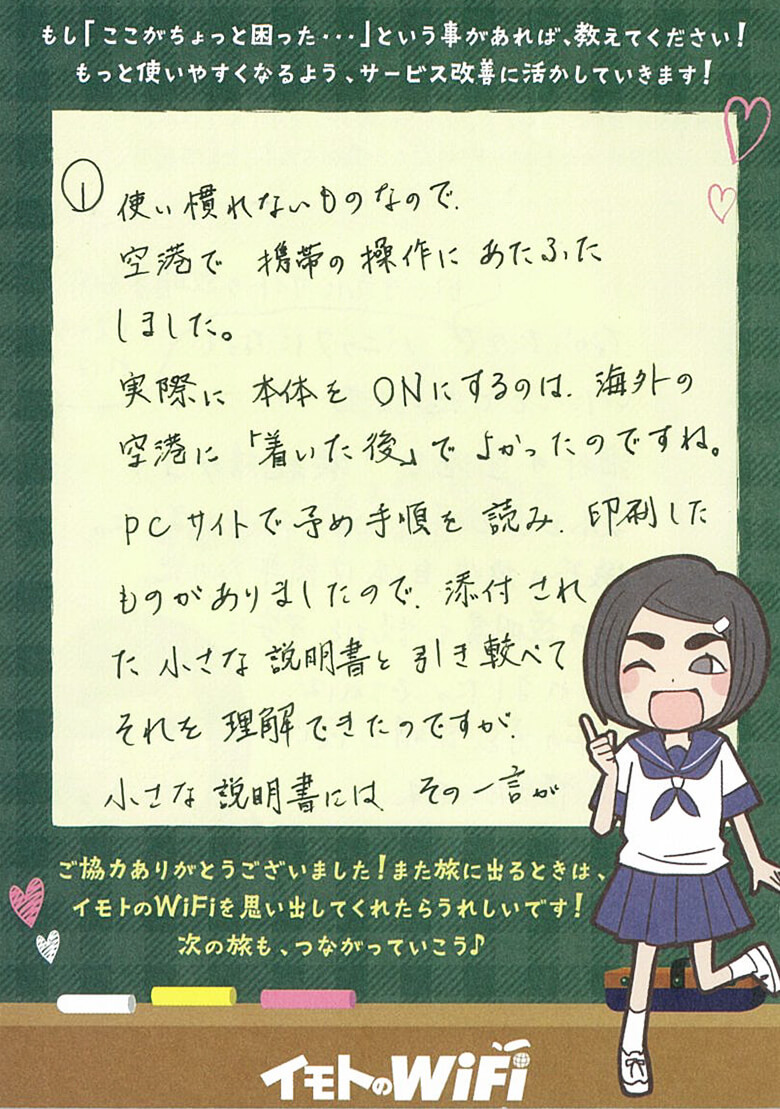 もし「ここがちょっと困った・・・」という事があれば、教えてください!
もっと使いやすくなるよう、サービス改善に活かしていきます!
① 使い慣れないものなので、
空港で 携帯の操作に あたふた
しました。
実際に 本体を ONにするのは、海外の
空港に「着いた後」で よかったのですね。
PCサイトで予め手順を 読み、印刷した
ものがありましたので、添付され
た 小さな 説明書と 引き較べて
それを 理解できたのですが、
小さな 説明書には その一言が
ご協力ありがとうございました!また旅に出るときは、
イモトのWiFiを思い出してくれたらうれしいです!
次の旅も、つながっていこう♪
イモトのWiFi